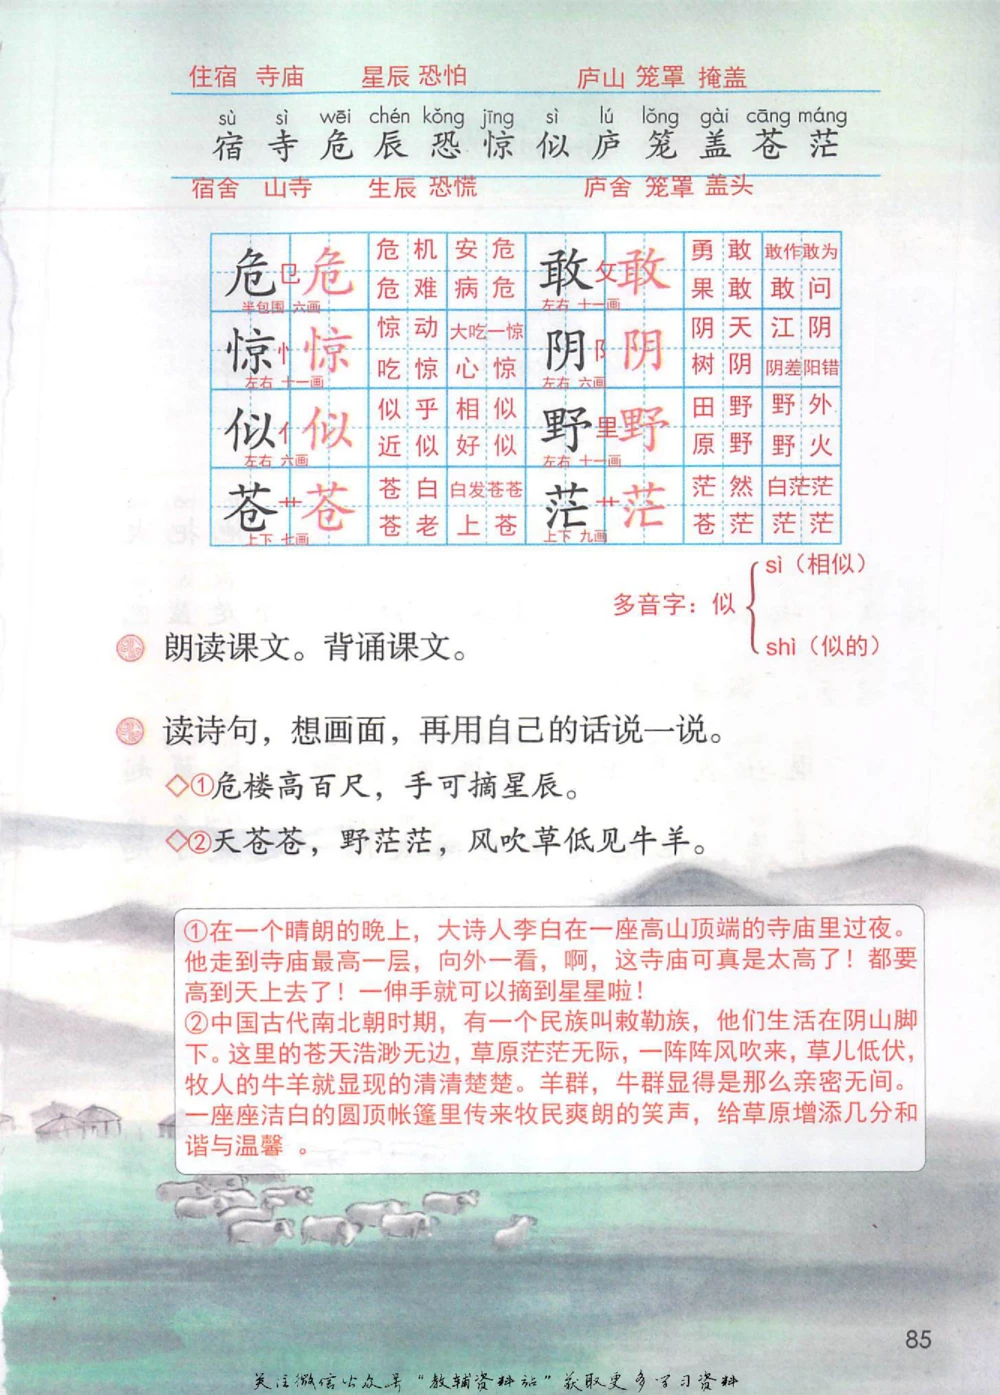 住宿 寺庙 星辰 恐怕 庐山 笼罩 掩盖
sù sì wēi chén kǒng jīng sì lú lǒng gài cāng máng
宿 寺 危 辰 恐 惊 似 庐 笼 盖 苍 茫
宿舍 山寺 生辰 恐慌 庐舍 笼罩 盖头
危 㔾 危 危机 安危 敢 攵 敢 勇敢 敢作敢为
半包围 六画 危难 病危 左右 十一画 果敢 敢问
惊 忄 惊 惊动 大吃一惊 阴 阝 阴 阴天 江阴
左右 十一画 吃惊 心惊 左右 六画 树阴 阴差阳错
似 亻 似 似乎 相似 野 里 野 田野 野外
左右 六画 近似 好似 左右 十一画 原野 野火
苍 艹 苍 苍白 白发苍苍 茫 艹 茫 茫然 白茫茫
上下 七画 苍老 上苍 上下 九画 苍茫 茫茫
sì（相似）
多音字：似
shì（似的）
朗读课文。背诵课文。
读诗句，想画面，再用自己的话说一说。
◇①危楼高百尺，手可摘星辰。
◇②天苍苍，野茫茫，风吹草低见牛羊。
①在一个晴朗的晚上，大诗人李白在一座高山顶端的寺庙里过夜。
他走到寺庙最高一层，向外一看，啊，这寺庙可真是太高了！都要
高到天上去了！一伸手就可以摘到星星啦！
②中国古代南北朝时期，有一个民族叫敕勒族，他们生活在阴山脚
下。这里的苍天浩渺无边，草原茫茫无际，一阵阵风吹来，草儿低伏，
牧人的牛羊就显现的清清楚楚。羊群，牛群显得是那么亲密无间。
一座座洁白的圆顶帐篷里传来牧民爽朗的笑声，给草原增添几分和
谐与温馨 。
85
关注微信公众号“教辅资料站”获取更多学习资料